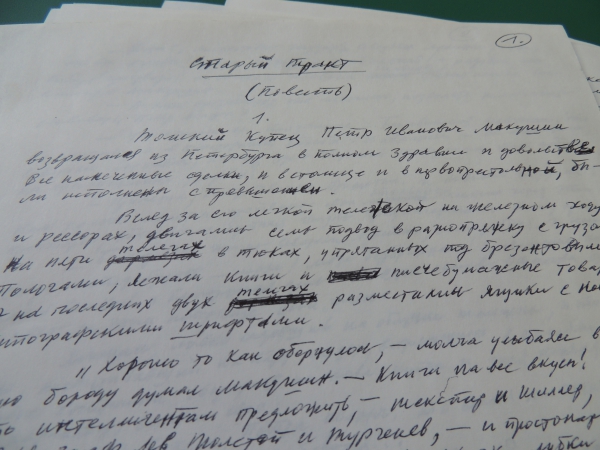 1.
Старый тракт
(повесть)
1.
Томский купец Петр Иванович Макушин
возвращался из Петербурга в полном здравии и довольстве.
Все намеченные сделки, и в столице и в первопрестольной, бы-
ли исполнены с превышением.
Вслед за его легкой тележкой на железном ходу
и рессорах, двигались семь подвод в разнопряжку с грузо
На пяти телегах в тюках, упрятанных под брезентовым
пологами, лежали книги и писчебумажные товар
на последних двух телегах разместились ящики с
типографскими шрифтами.
"Хорошо то как обернулось, – молча улыбаясь в
бороду думал Макушин. – Книги на все вкусы!
интеллигентам предложить, – Шекспир и Шиллер,
Лев Толстой и Тургенев, – и простонар